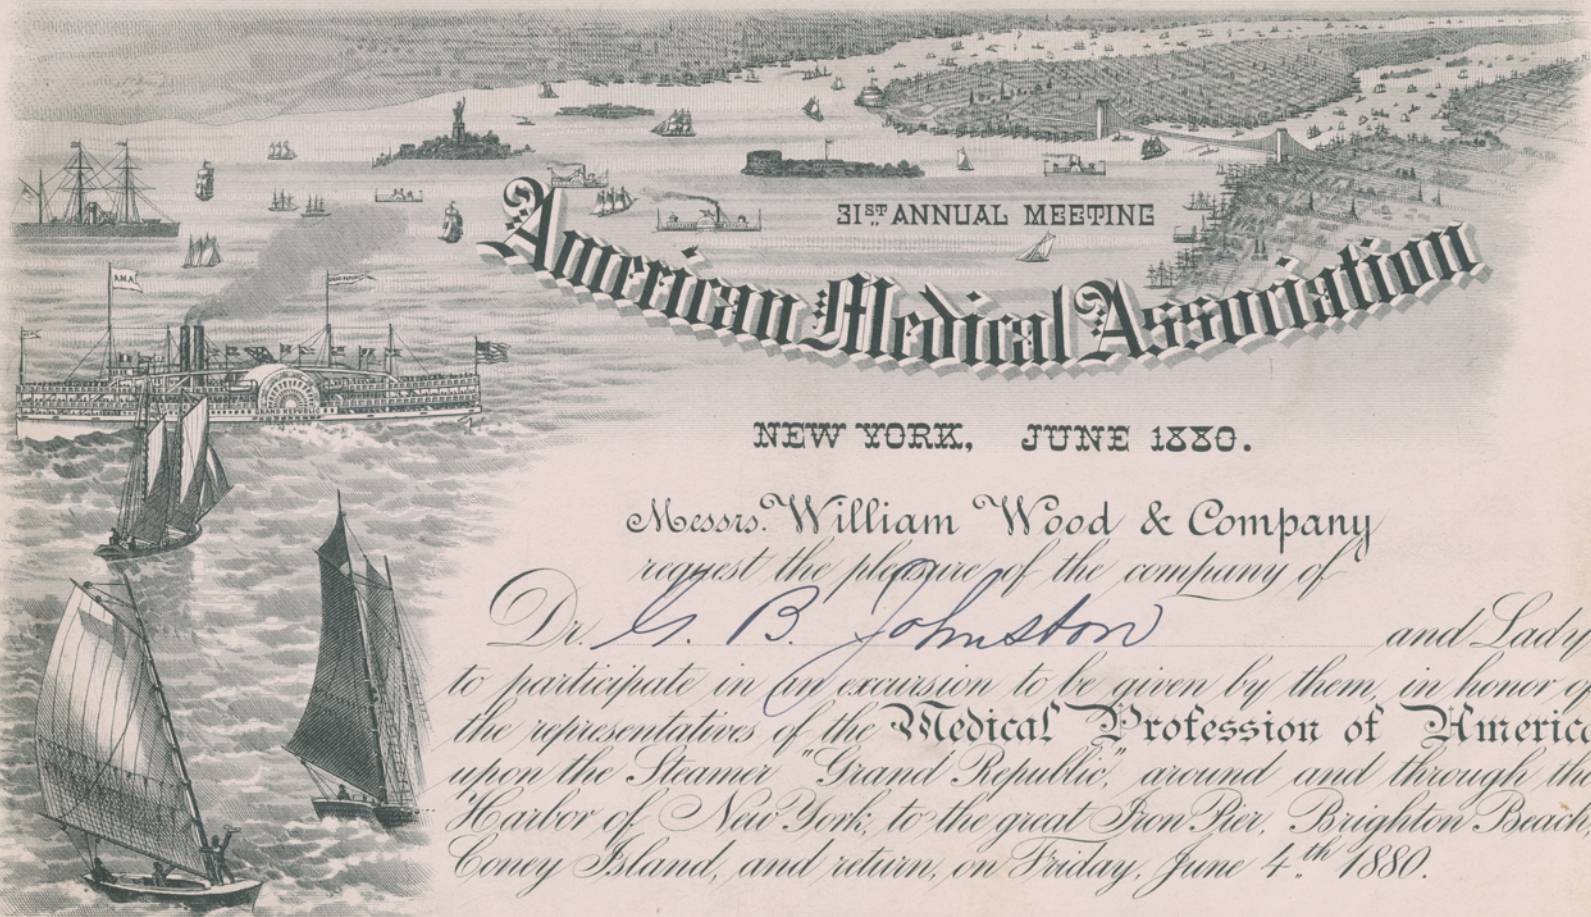 31ST ANNUAL MEETING
American Medical Association
A.M.A.
GRAND REPUBLIC
NEW YORK, JUNE 1880.
Messrs. William Wood & Company
request the pleasure of the company of
Dr. G. B. Johnston and Lady
to participate in an excursion to be given by them, in honor of
the representatives of the Medical Profession of America
upon the Steamer "Grand Republic", around and through the
Harbor of New York, to the great Iron Pier, Brighton Beach,
Coney Island, and return, on Friday, June 4th 1880.